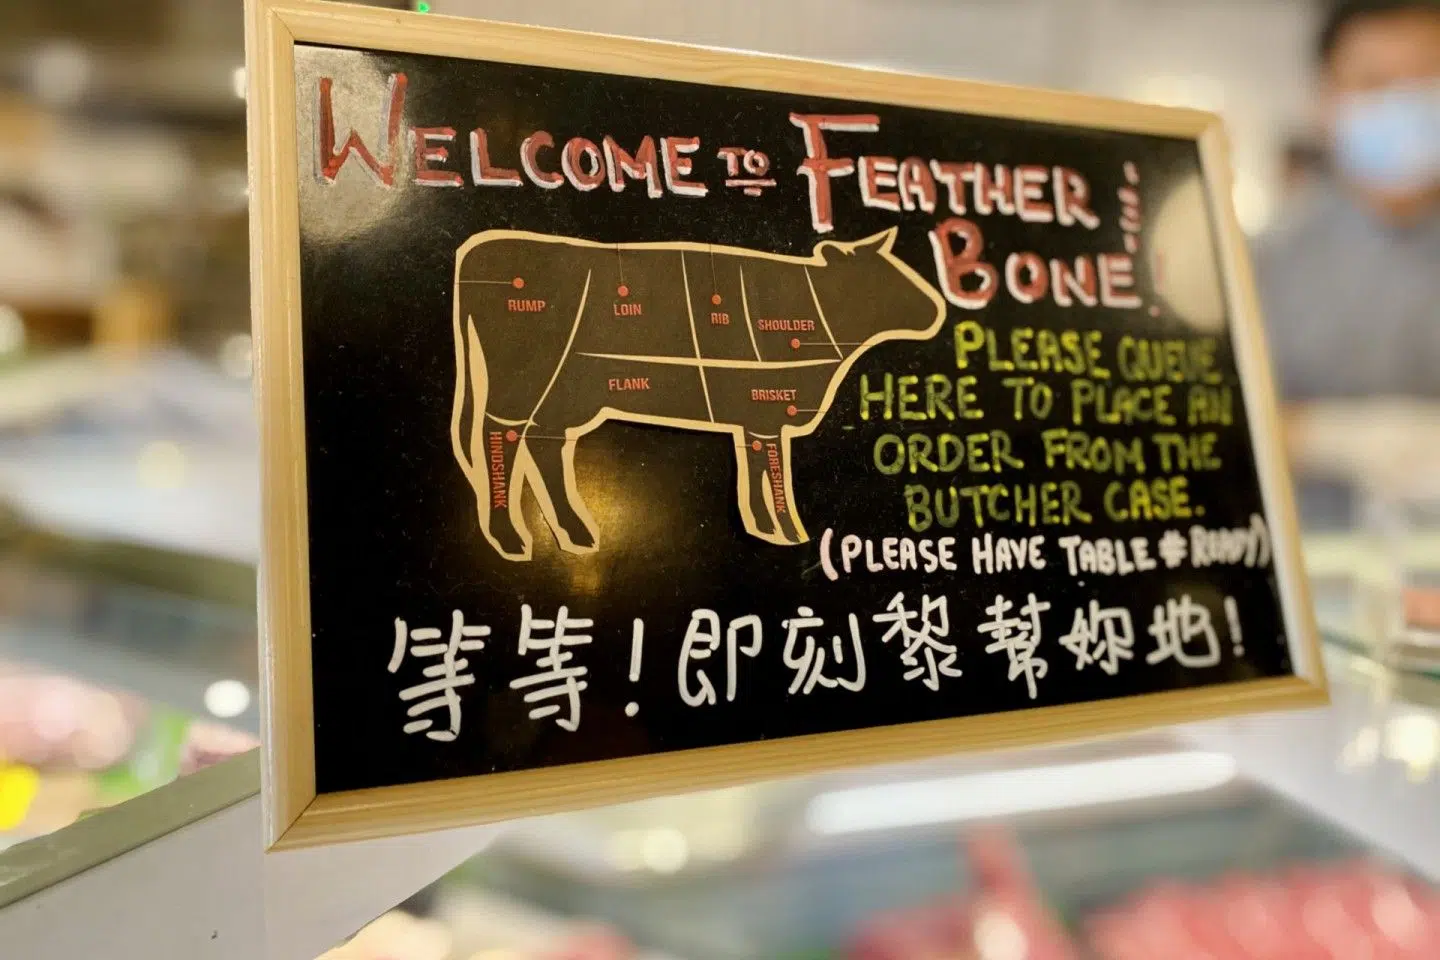 WELCOME TO FEATHER
BONE!
RUMP
LOIN
RIB
SHOULDER
FLANK
BRISKET
HINDSHANK
FORESHANK
PLEASE QUEUE
HERE TO PLACE AN
ORDER FROM THE
BUTCHER CASE.
(PLEASE HAVE TABLE # READY)
等等！即刻黎幫妳地！